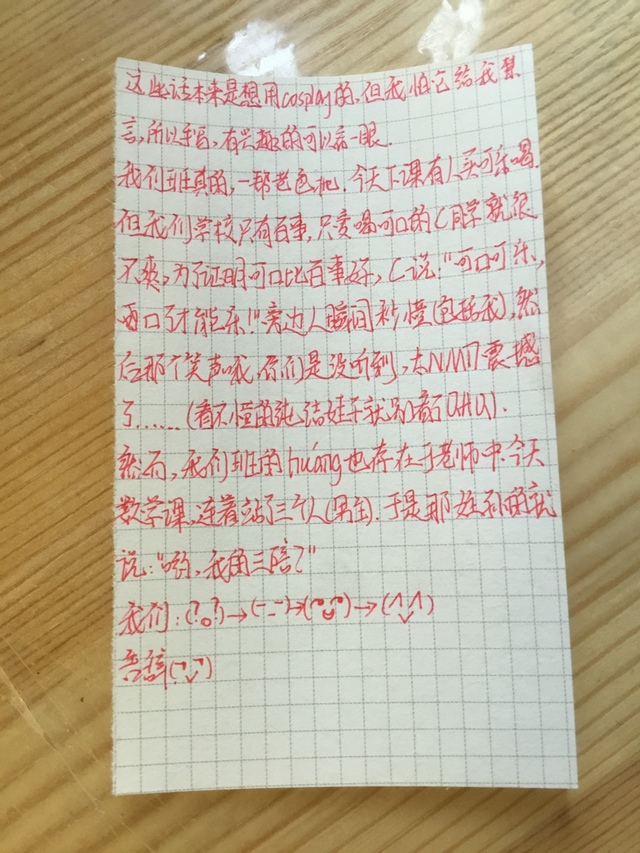 这些话本来是想用cosplay的,但我怕它给我禁
言,所以手写,有兴趣的可以看一眼.
我们班真的,一帮老色批.今天下课有人买可乐喝.
但我们学校只有百事,只爱喝可口的C同学就很
不爽,为了证明可口比百事好,C说:"可口可乐,
可口了才能乐!"旁边人瞬间秒懂(包括我),然
后那个笑声哦,你们是没听到,太NM震撼
了......(看不懂的纯洁娃子就别看了,DHU).
然而,我们班的huáng也存在于老师中.今天
数学课,连着站了三个人(男生).于是那姓孙的就
说:"哟,我角三陪?"
我们:(?o?)→(-_-)→(
告辞(